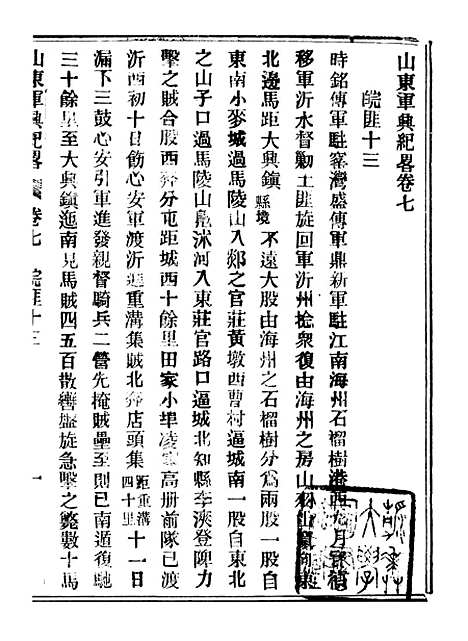 山東軍興紀畧卷七
皖匪十三
時銘傳軍駐窰灣盛傳軍鼎新軍駐江南海州石榴樹港西九月
移軍沂水督勦土匪旋回軍沂州捻衆復由海州之房山羽山竄
北邊馬距大興鎮縣境不遠大股由海州之石榴樹分爲兩股一股自
東南小麥城過馬陵山入郯之官莊黃墩西曹村逼城南一股自東北
之山子口過馬陵山鳧沭河入東莊官路口逼城北知縣李淡登陴力
擊之賊合股西奔分屯距城西十餘里田家小埠凌高册前隊已渡
沂西初十日飭心安軍渡沂進重溝集賊北奔店頭集距重溝四十里十一日
漏下三鼓心安引軍進發親督騎兵二營先掩賊壘至則已南遁復馳
三十餘里至大興鎮迤南見馬賊四五百散轡盤旋急擊之斃數十馬
山東軍興紀畧 卷七 皖匪十三 一